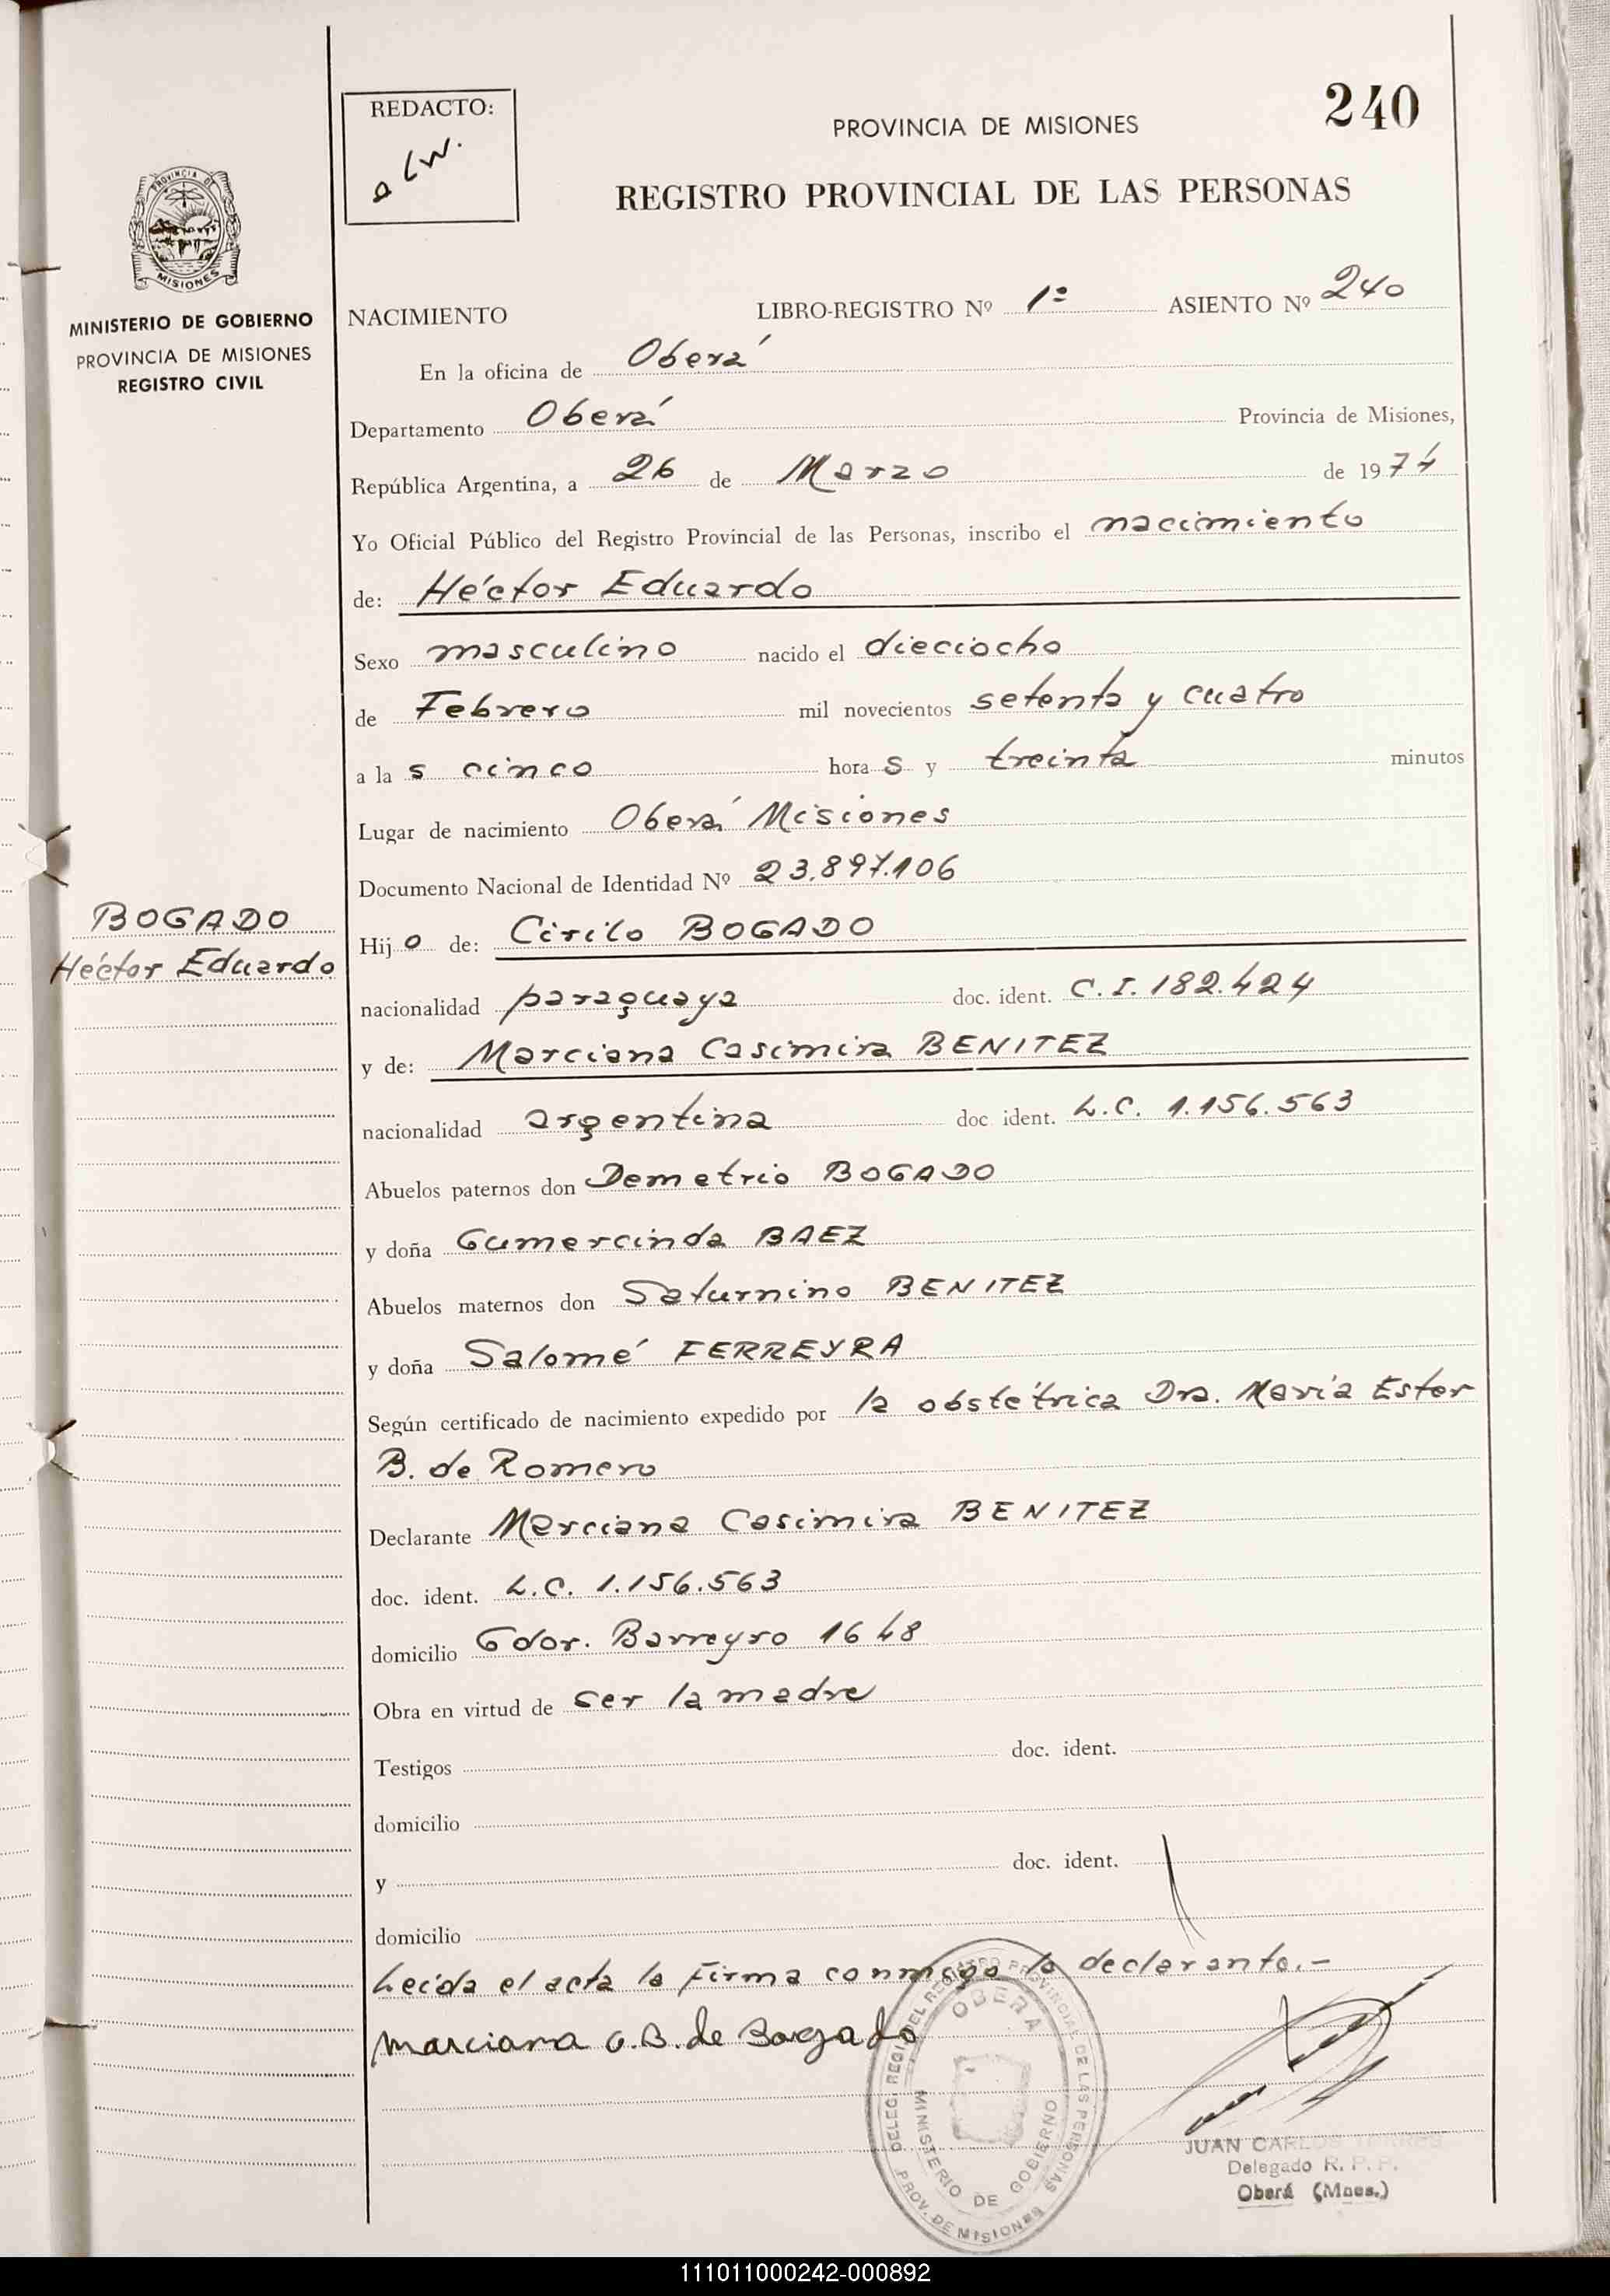 240
REDACTO:
PROVINCIA DE MISIONES
REGISTRO PROVINCIAL DE LAS PERSONAS
PROVINCIA DE
MISIONES
MINISTERIO DE GOBIERNO
PROVINCIA DE MISIONES
REGISTRO CIVIL
NACIMIENTO LIBRO-REGISTRO Nº 1º ASIENTO Nº 240
En la oficina de Oberá
Departamento Oberá Provincia de Misiones,
República Argentina, a 26 de Marzo de 1974
Yo Oficial Público del Registro Provincial de las Personas, inscribo el nacimiento
de: Héctor Eduardo
Sexo masculino nacido el dieciocho
de Febrero mil novecientos setenta y cuatro
a la s cinco hora s y treinta minutos
Lugar de nacimiento Oberá Misiones
Documento Nacional de Identidad Nº 23.897.106
BOGADO
Héctor Eduardo
Hij o de: Cirilo BOGADO
nacionalidad paraguaya doc. ident. C.I. 182.424
y de: Marciana Casimira BENITEZ
nacionalidad argentina doc ident. L.C. 1.156.563
Abuelos paternos don Demetrio BOGADO
y doña Gumercinda BAEZ
Abuelos maternos don Saturnino BENITEZ
y doña Salomé FERREYRA
Según certificado de nacimiento expedido por la obstétrica Dra. María Ester
B. de Romero
Declarante Marciana Casimira BENITEZ
doc. ident. L.C. 1.156.563
domicilio Gdor. Barreyro 1648
Obra en virtud de ser la madre
Testigos doc. ident.
domicilio
y doc. ident.
domicilio
Leída el acta la firma conmigo la declarante.-
Marciana C.B. de Bogado
DELEG. REGI. DEL REGISTRO PROVINCIAL DE LAS PERSONAS
OBERA
MINISTERIO DE GOBIERNO
PROV. DE MISIONES
JUAN CARLOS TORRES
Delegado R. P. P.
Oberá (Mnes.)
111011000242-000892